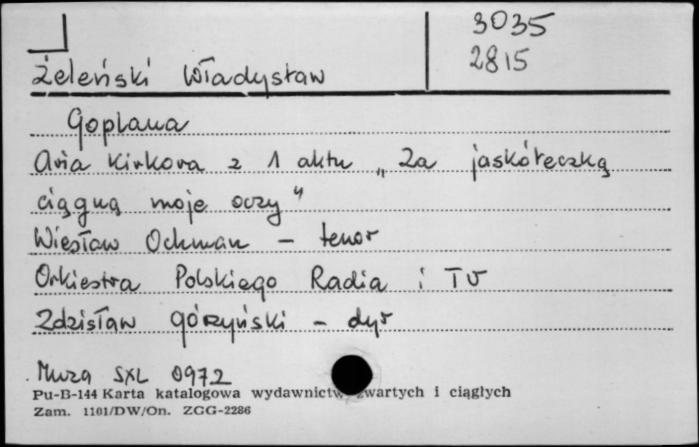 3035
2815
Żeleński Władysław
Goplana
Aria Kirkora z 1 aktu „Za jaskółeczką
ciągną moje oczy"
Wiesław Ochman - tenor
Orkiestra Polskiego Radia i TV
Zdzisław Górzyński - dyr
Muza SXL 0972
Pu-B-144 Karta katalogowa wydawnictw zwartych i ciągłych
Zam. 1101/DW/On. ZCG-2286